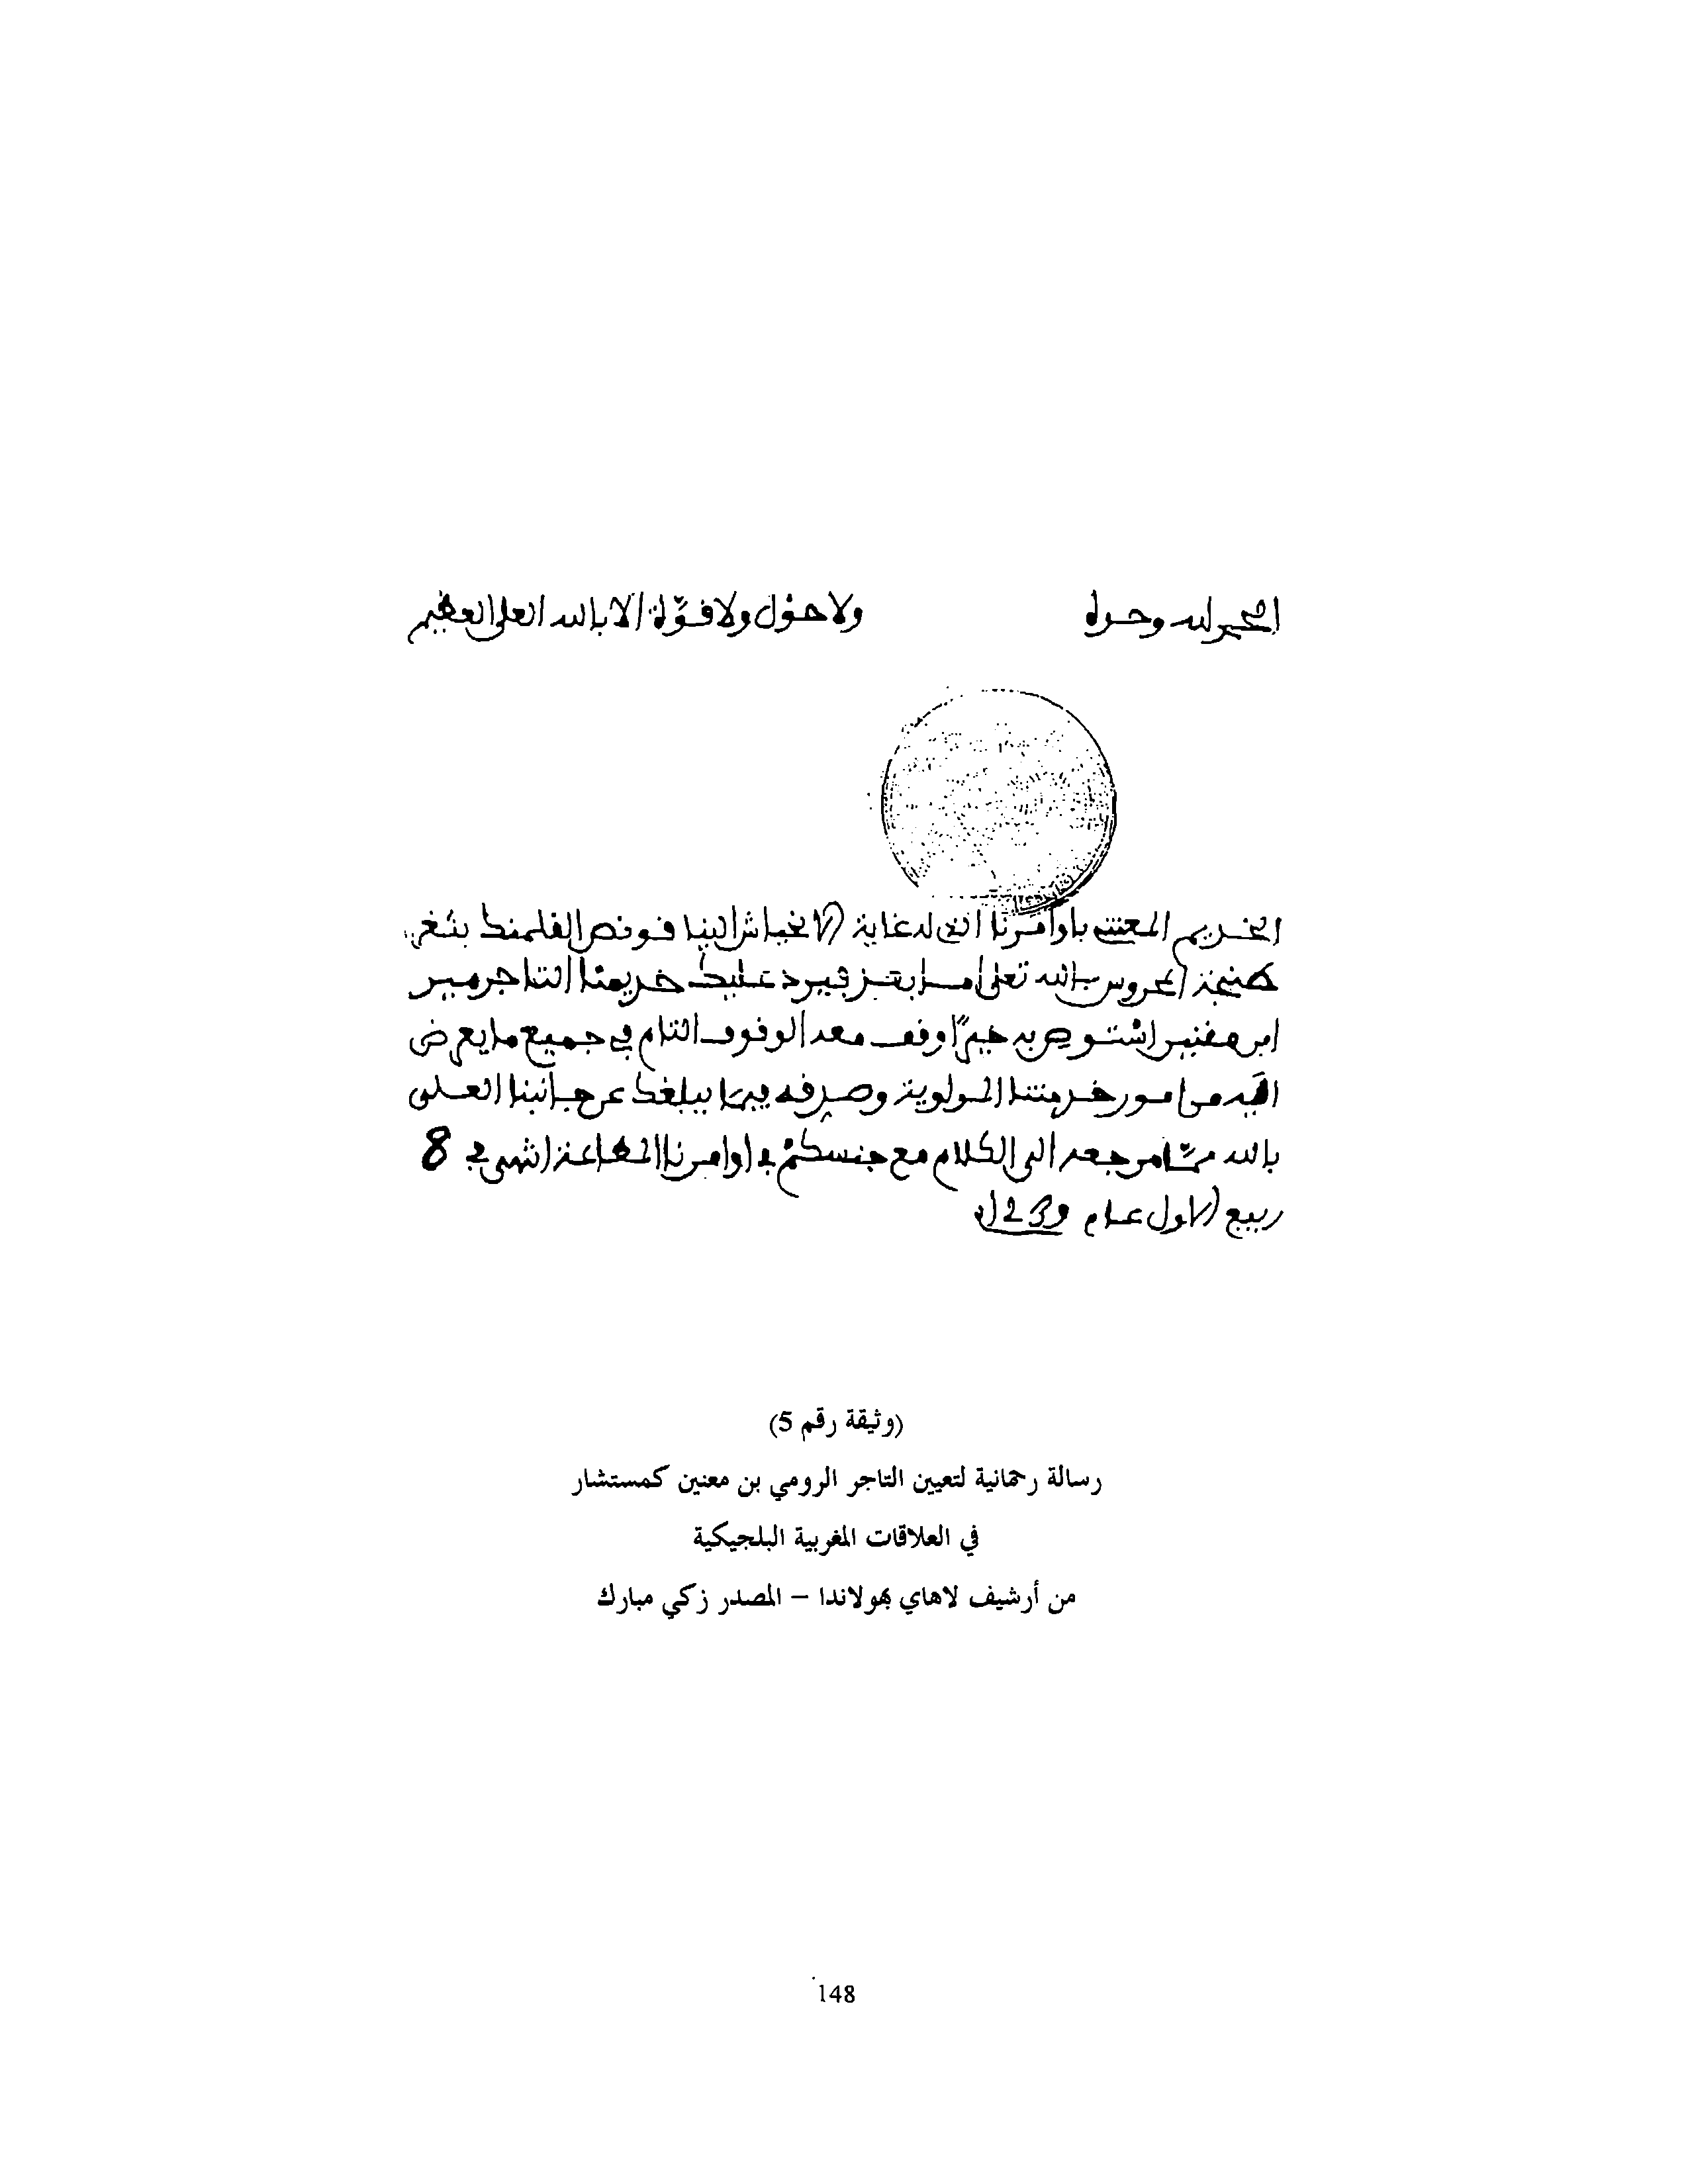 الحمد لله وحده
ولا حول ولا قوة الا بالله العلي العظيم
الخديم بأوامرنا غاية الانحياش الينا قونص الفلمنك بثغر
طنجة المحروس بالله تعلى اما بعد فيرد عليك خديمنا التاجر مير
ابن استوص به خيرا وقف معه الوقوف التام في جميع ما يعرض
اليه من امور خدمتنا المولوية وصرفه فيما يبلغك عن جانبنا العلي
بالله مما مرجعه الى الكلام مع جنسكم في اوامرنا المطاعة انتهى في 8
ربيع الاول عام
(وثيقة رقم 5)
رسالة رحمانية لتعيين التاجر الرومي بن معنين كمستشار
في العلاقات المغربية البلجيكية
من أرشيف لاهاي بهولاندا – المصدر زكي مبارك
148